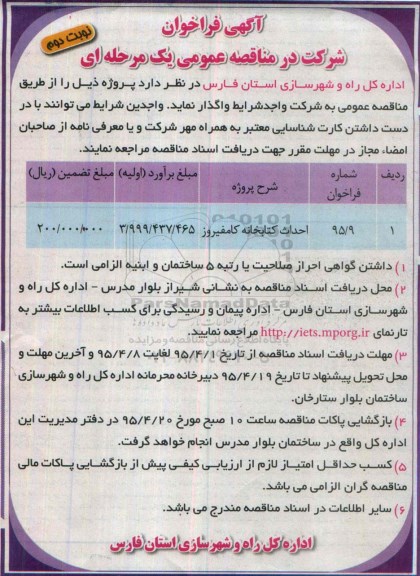 آگهی فراخوان
نوبت دوم
شرکت در مناقصه عمومی یک مرحله ای
اداره کل راه و شهرسازی استان فارس در نظر دارد پروژه ذیل را از طریق
مناقصه عمومی به شرکت واجدشرایط واگذار نماید. واجدین شرایط می توانند با در
دست داشتن کارت شناسایی معتبر به همراه مهر شرکت و یا معرفی نامه از صاحبان
امضاء مجاز در مهلت مقرر جهت دریافت اسناد مناقصه مراجعه نمایند.
ردیف شماره فراخوان شرح پروژه مبلغ برآورد (اولیه) مبلغ تضمین (ریال)
۱ ۹۵/۹ احداث کتابخانه کامفیروز ۳/۹۹۹/۴۳۷/۴۶۵ ۲۰۰/۰۰۰/۰۰۰
۱) داشتن گواهی احراز صلاحیت یا رتبه ۵ ساختمان و ابنیه الزامی است.
۲) محل دریافت اسناد مناقصه به نشانی شیراز بلوار مدرس - اداره کل راه و
شهرسازی استان فارس - اداره پیمان و رسیدگی برای کسب اطلاعات بیشتر به
تارنمای http://iets.mporg.ir مراجعه نمایید.
۳) مهلت دریافت اسناد مناقصه از تاریخ ۹۵/۴/۱ لغایت ۹۵/۴/۸ و آخرین مهلت و
محل تحویل پیشنهاد تا تاریخ ۹۵/۴/۱۹ دبیرخانه محرمانه اداره کل راه و شهرسازی
ساختمان بلوار ستارخان.
۴) بازگشایی پاکات مناقصه ساعت ۱۰ صبح مورخ ۹۵/۴/۲۰ در دفتر مدیریت این
اداره کل واقع در ساختمان بلوار مدرس انجام خواهد گرفت.
۵) کسب حداقل امتیاز لازم از ارزیابی کیفی پیش از بازگشایی پاکات مالی
مناقصه گران الزامی می باشد.
۶) سایر اطلاعات در اسناد مناقصه مندرج می باشد.
اداره کل راه و شهرسازی استان فارس
ParsNamadData
پایگاه اطلاع رسانی مناقصه و مزایده